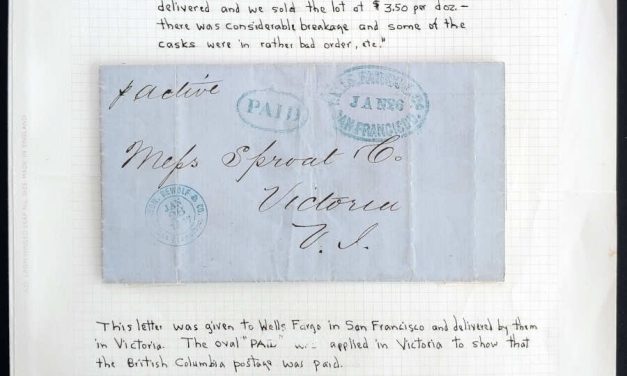 delivered and we sold the lot at $3.50 per doz. —
there was considerable breakage and some of the
casks were in rather bad order, etc."
p Active
PAID
WELLS, FARGO & Co
JAN 26
SAN FRANCISCO
DEWOLF & CO.
JAN
Mess Sproat & Co.
Victoria
V. I.
This letter was given to Wells Fargo in San Francisco and delivered by them
in Victoria. The oval "PAID" was applied in Victoria to show that
the British Columbia postage was paid.